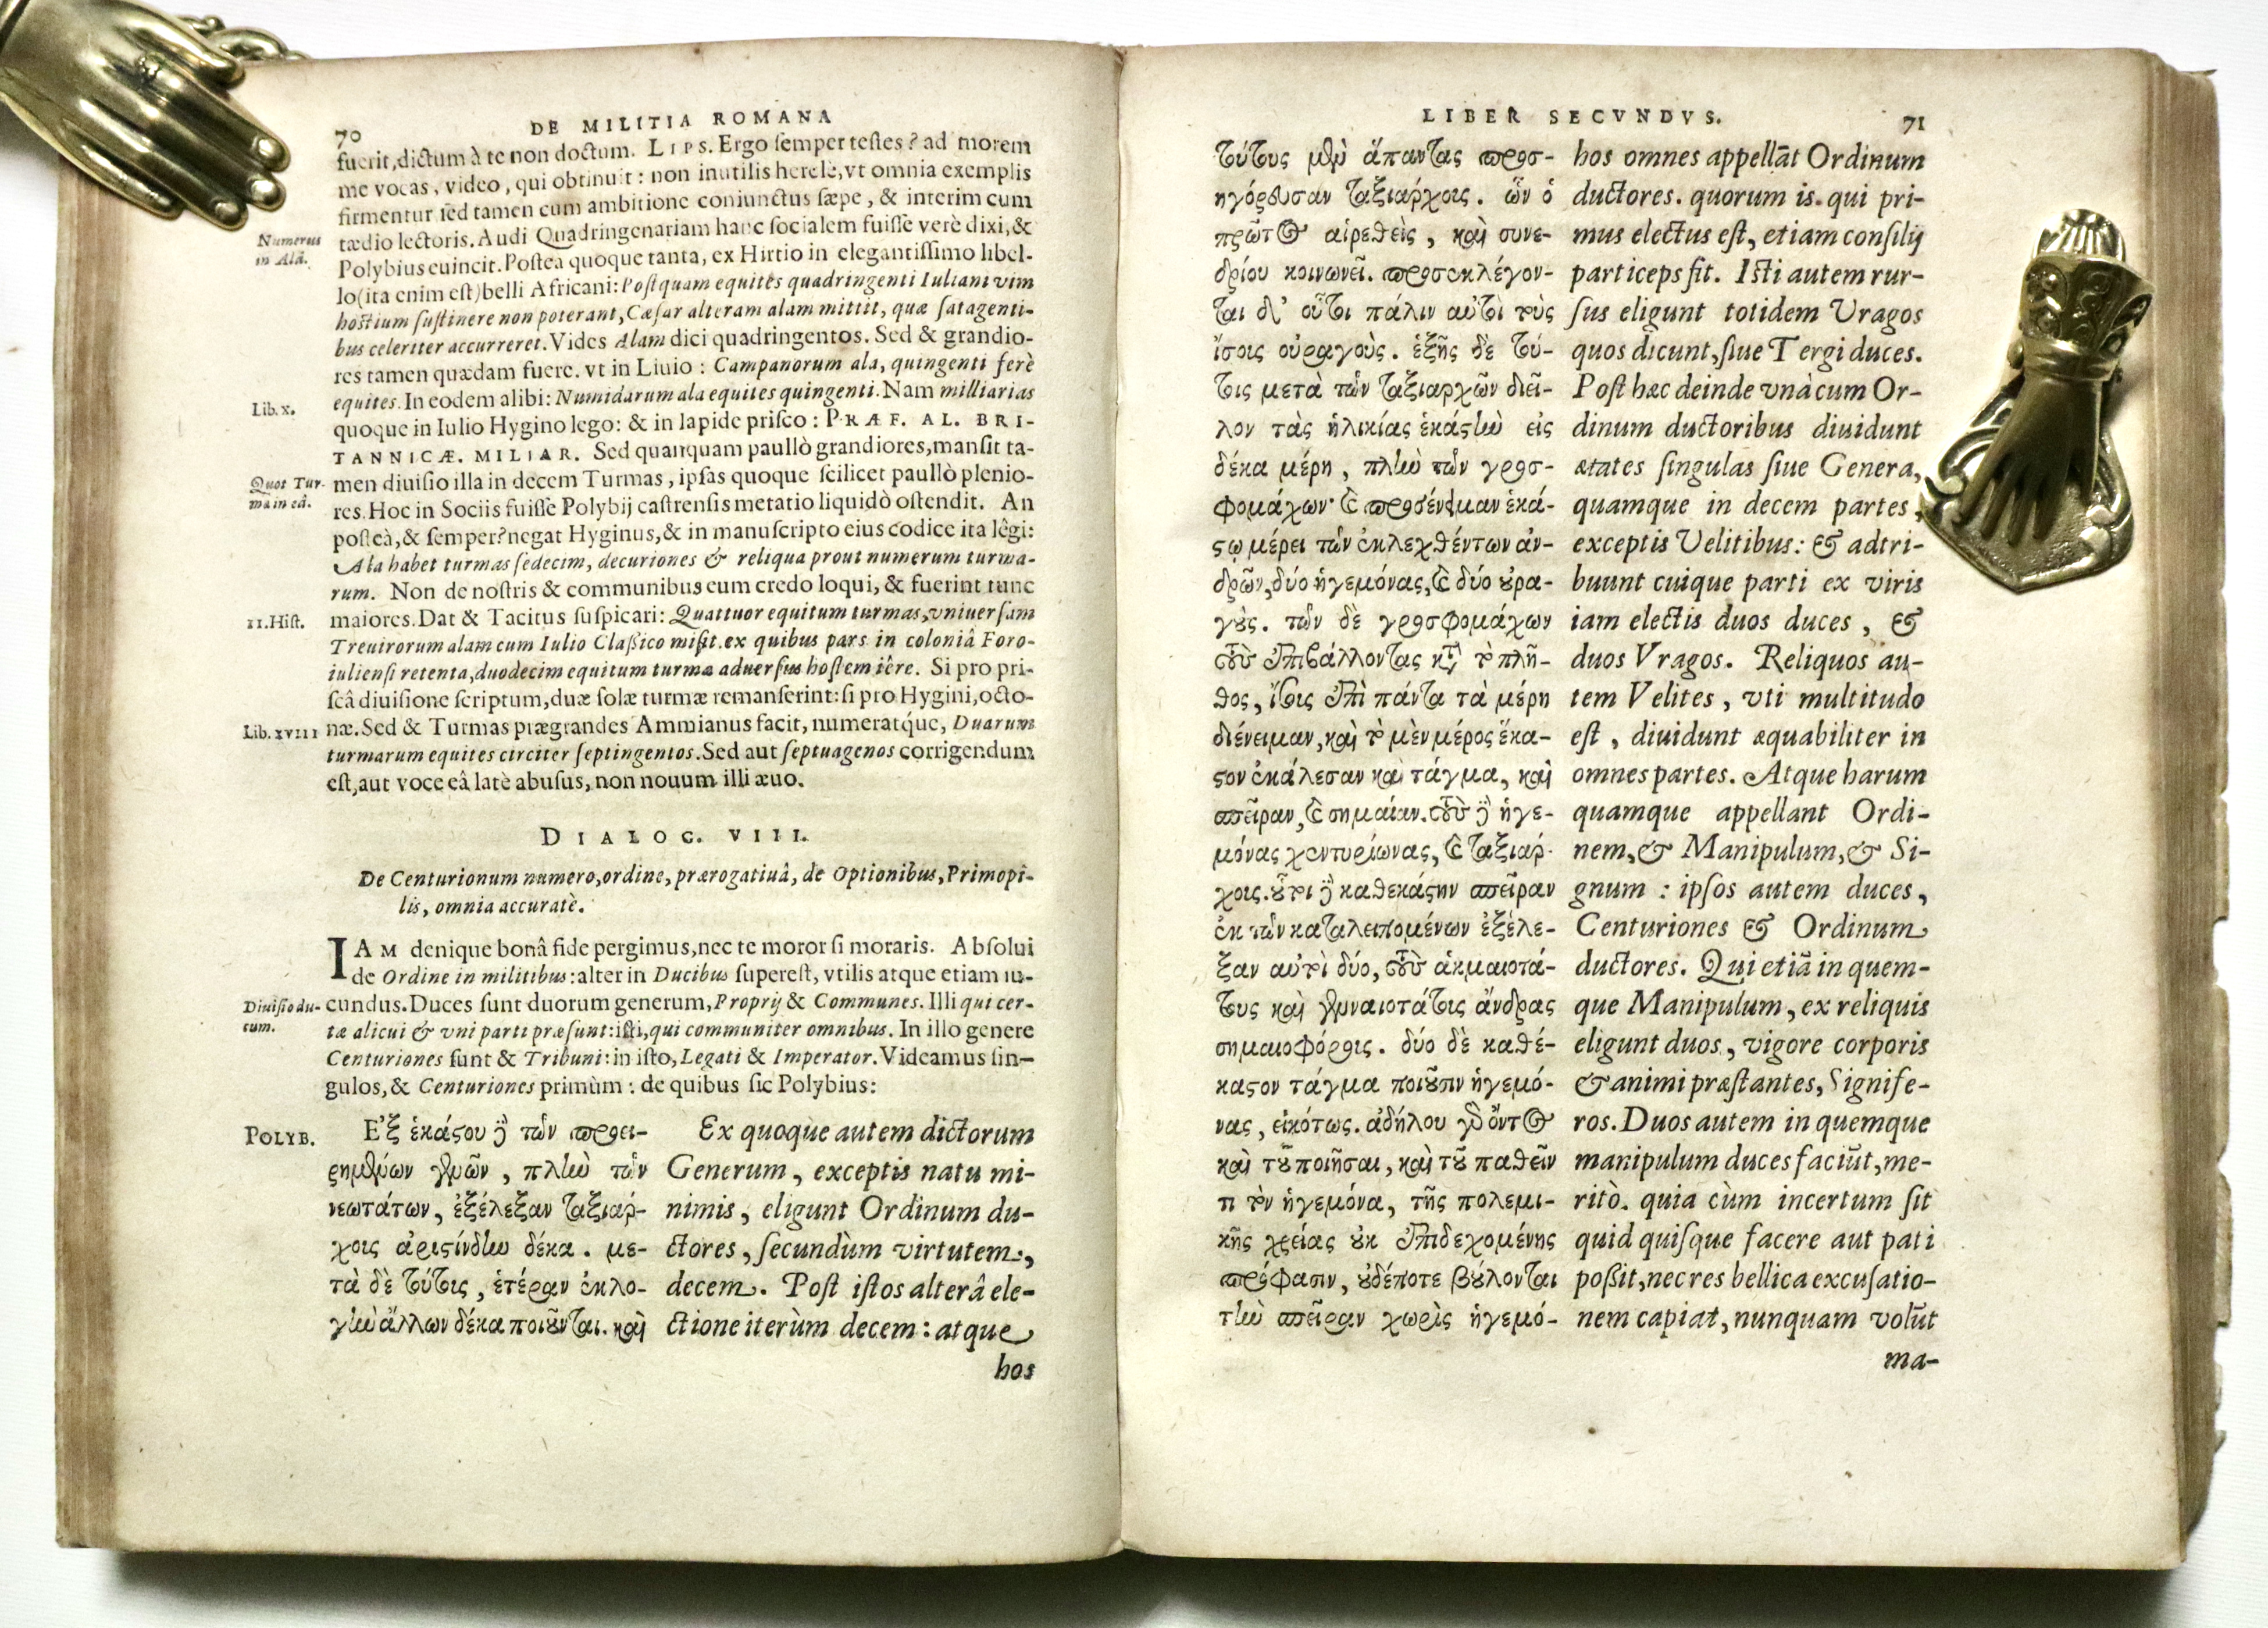 70
DE MILITIA ROMANA
fuerit, dictum à te non doctum. LIPS. Ergo semper testes? ad morem
me vocas, video, qui obtinuit: non inutilis hercle, vt omnia exemplis
firmentur sed tamen cum ambitione coniunctus sæpe, & interim cum
Numerus
in Alâ.
tædio lectoris. Audi Quadringenariam hanc socialem fuisse verè dixi, &
Polybius euincit. Postea quoque tanta, ex Hirtio in elegantissimo libel-
lo (ita enim est) belli Africani: Postquam equites quadringenti Iuliani vim
hostium sustinere non poterant, Cæsar alteram alam mittit, quæ satagenti-
bus celeriter accurreret. Vides Alam dici quadringentos. Sed & grandio-
res tamen quædam fuere. vt in Liuio: Campanorum ala, quingenti ferè
Lib. x.
equites. In eodem alibi: Numidarum ala equites quingenti. Nam milliarias
quoque in Iulio Hygino lego: & in lapide prisco: PRÆF. AL. BRI-
TANNICÆ. MILIAR. Sed quanquam paullò grandiores, mansit ta-
Quot Tur-
mæ in eâ.
men diuisio illa in decem Turmas, ipsas quoque scilicet paullò plenio-
res. Hoc in Sociis fuisse Polybij castrensis metatio liquidò ostendit. An
posteà, & semper? negat Hyginus, & in manuscripto eius codice ita lêgi:
Ala habet turmas sedecim, decuriones & reliqua prout numerum turma-
rum. Non de nostris & communibus eum credo loqui, & fuerint tunc
11. Hist.
maiores. Dat & Tacitus suspicari: Quattuor equitum turmas, vniuersam
Treuirorum alam cum Iulio Classico misit. ex quibus pars in coloniâ Foro-
iuliensi retenta, duodecim equitum turmæ aduersus hostem iêre. Si pro pri-
scâ diuisione scriptum, duæ solæ turmæ remanserint: si pro Hygini, octo-
Lib. XVIII
næ. Sed & Turmas prægrandes Ammianus facit, numeratque, Duarum
turmarum equites circiter septingentos. Sed aut septuagenos corrigendum
est, aut voce eâ latè abusus, non nouum illi æuo.
DIALOG. VIII.
De Centurionum numero, ordine, prærogatiuâ, de Optionibus, Primopi-
lis, omnia accuratè.
IAM denique bonâ fide pergimus, nec te moror si moraris. Absolui
de Ordine in militibus: alter in Ducibus superest, vtilis atque etiam iu-
Diuisio du-
cum.
cundus. Duces sunt duorum generum, Proprij & Communes. Illi qui cer-
tæ alicui & vni parti præsunt: isti, qui communiter omnibus. In illo genere
Centuriones sunt & Tribuni: in isto, Legati & Imperator. Videamus sin-
gulos, & Centuriones primùm: de quibus sic Polybius:
POLYB.
Ἐξ ἑκάστου δὲ τῶν προει-
ρημένων γενῶν, πλὴν τῶν
νεωτάτων, ἐξέλεξαν ταξιάρ-
χοις ἀριστίνδην δέκα. με-
τὰ δὲ τούτοις, ἑτέραν ἐκλο-
γὴν ἄλλων δέκα ποιοῦνται. καὶ
Ex quoque autem dictorum
Generum, exceptis natu mi-
nimis, eligunt Ordinum du-
ctores, secundùm virtutem,
decem. Post istos alterâ ele-
ctione iterùm decem: atque
hos
LIBER SECVNDVS.
71
τούτους μὲν ἅπαντας προσ-
ηγόρευσαν ταξιάρχοις. ὧν ὁ
πρῶτος αἱρεθεὶς, καὶ συνε-
δρίου κοινωνεῖ. προσεκλέγον-
ται δ᾽ οὗτοι πάλιν αὐτοὶ τοὺς
ἴσοις οὐραγοὺς. ἑξῆς δὲ τού-
τοις μετὰ τῶν ταξιαρχῶν διεῖ-
λον τὰς ἡλικίας ἑκάστην εἰς
δέκα μέρη, πλὴν τῶν γροσ-
φομάχων· καὶ προσένειμαν ἑκά-
στῳ μέρει τῶν ἐκλεχθέντων ἀν-
δρῶν, δύο ἡγεμόνας, καὶ δύο οὐρα-
γούς. τῶν δὲ γροσφομάχων
τοὺς ἐπιβάλλοντας κατὰ τὸ πλῆ-
θος, ἴσοις ἐπὶ πάντα τὰ μέρη
διένειμαν, καὶ τὸ μὲν μέρος ἕκα-
στον ἐκάλεσαν καὶ τάγμα, καὶ
σπεῖραν, καὶ σημαίαν. τοὺς δὲ ἡγε-
μόνας κεντυρίωνας, καὶ ταξιάρ-
χοις. οὗτοι δὲ καθεκάστην σπεῖραν
ἐκ τῶν καταλειπομένων ἐξέλε-
ξαν αὐτοὶ δύο, τοὺς ἀκμαιοτά-
τους καὶ γενναιοτάτοις ἄνδρας
σημαιοφόροις. δύο δὲ καθέ-
καστον τάγμα ποιοῦσιν ἡγεμό-
νας, εἰκότως. ἀδήλου γὰρ ὄντος
καὶ τοῦ ποιῆσαι, καὶ τοῦ παθεῖν
τι τὸν ἡγεμόνα, τῆς πολεμι-
κῆς χρείας οὐκ ἐπιδεχομένης
πρόφασιν, οὐδέποτε βούλονται
τὴν σπεῖραν χωρὶς ἡγεμό-
hos omnes appellāt Ordinum
ductores. quorum is. qui pri-
mus electus est, etiam consilij
particeps fit. Isti autem rur-
sus eligunt totidem Vragos
quos dicunt, siue Tergiduces.
Post hæc deinde vnà cum Or-
dinum ductoribus diuidunt
ætates singulas siue Genera,
quamque in decem partes,
exceptis Velitibus: & adtri-
buunt cuique parti ex viris
iam electis duos duces, &
duos Vragos. Reliquos au-
tem Velites, vti multitudo
est, diuidunt æquabiliter in
omnes partes. Atque harum
quamque appellant Ordi-
nem, & Manipulum, & Si-
gnum: ipsos autem duces,
Centuriones & Ordinum
ductores. Qui etiā in quem-
que Manipulum, ex reliquis
eligunt duos, vigore corporis
& animi præstantes, Signife-
ros. Duos autem in quemque
manipulum duces faciūt, me-
ritò. quia cùm incertum sit
quid quisque facere aut pati
possit, nec res bellica excusatio-
nem capiat, nunquam volūt
ma-